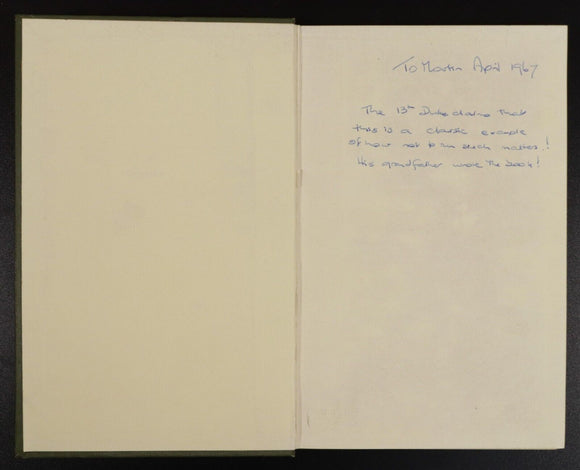 To Martin April 1967
The 13th Duke claims that
this is a classic example
of how not to run such matters!
His grandfather wrote the book!